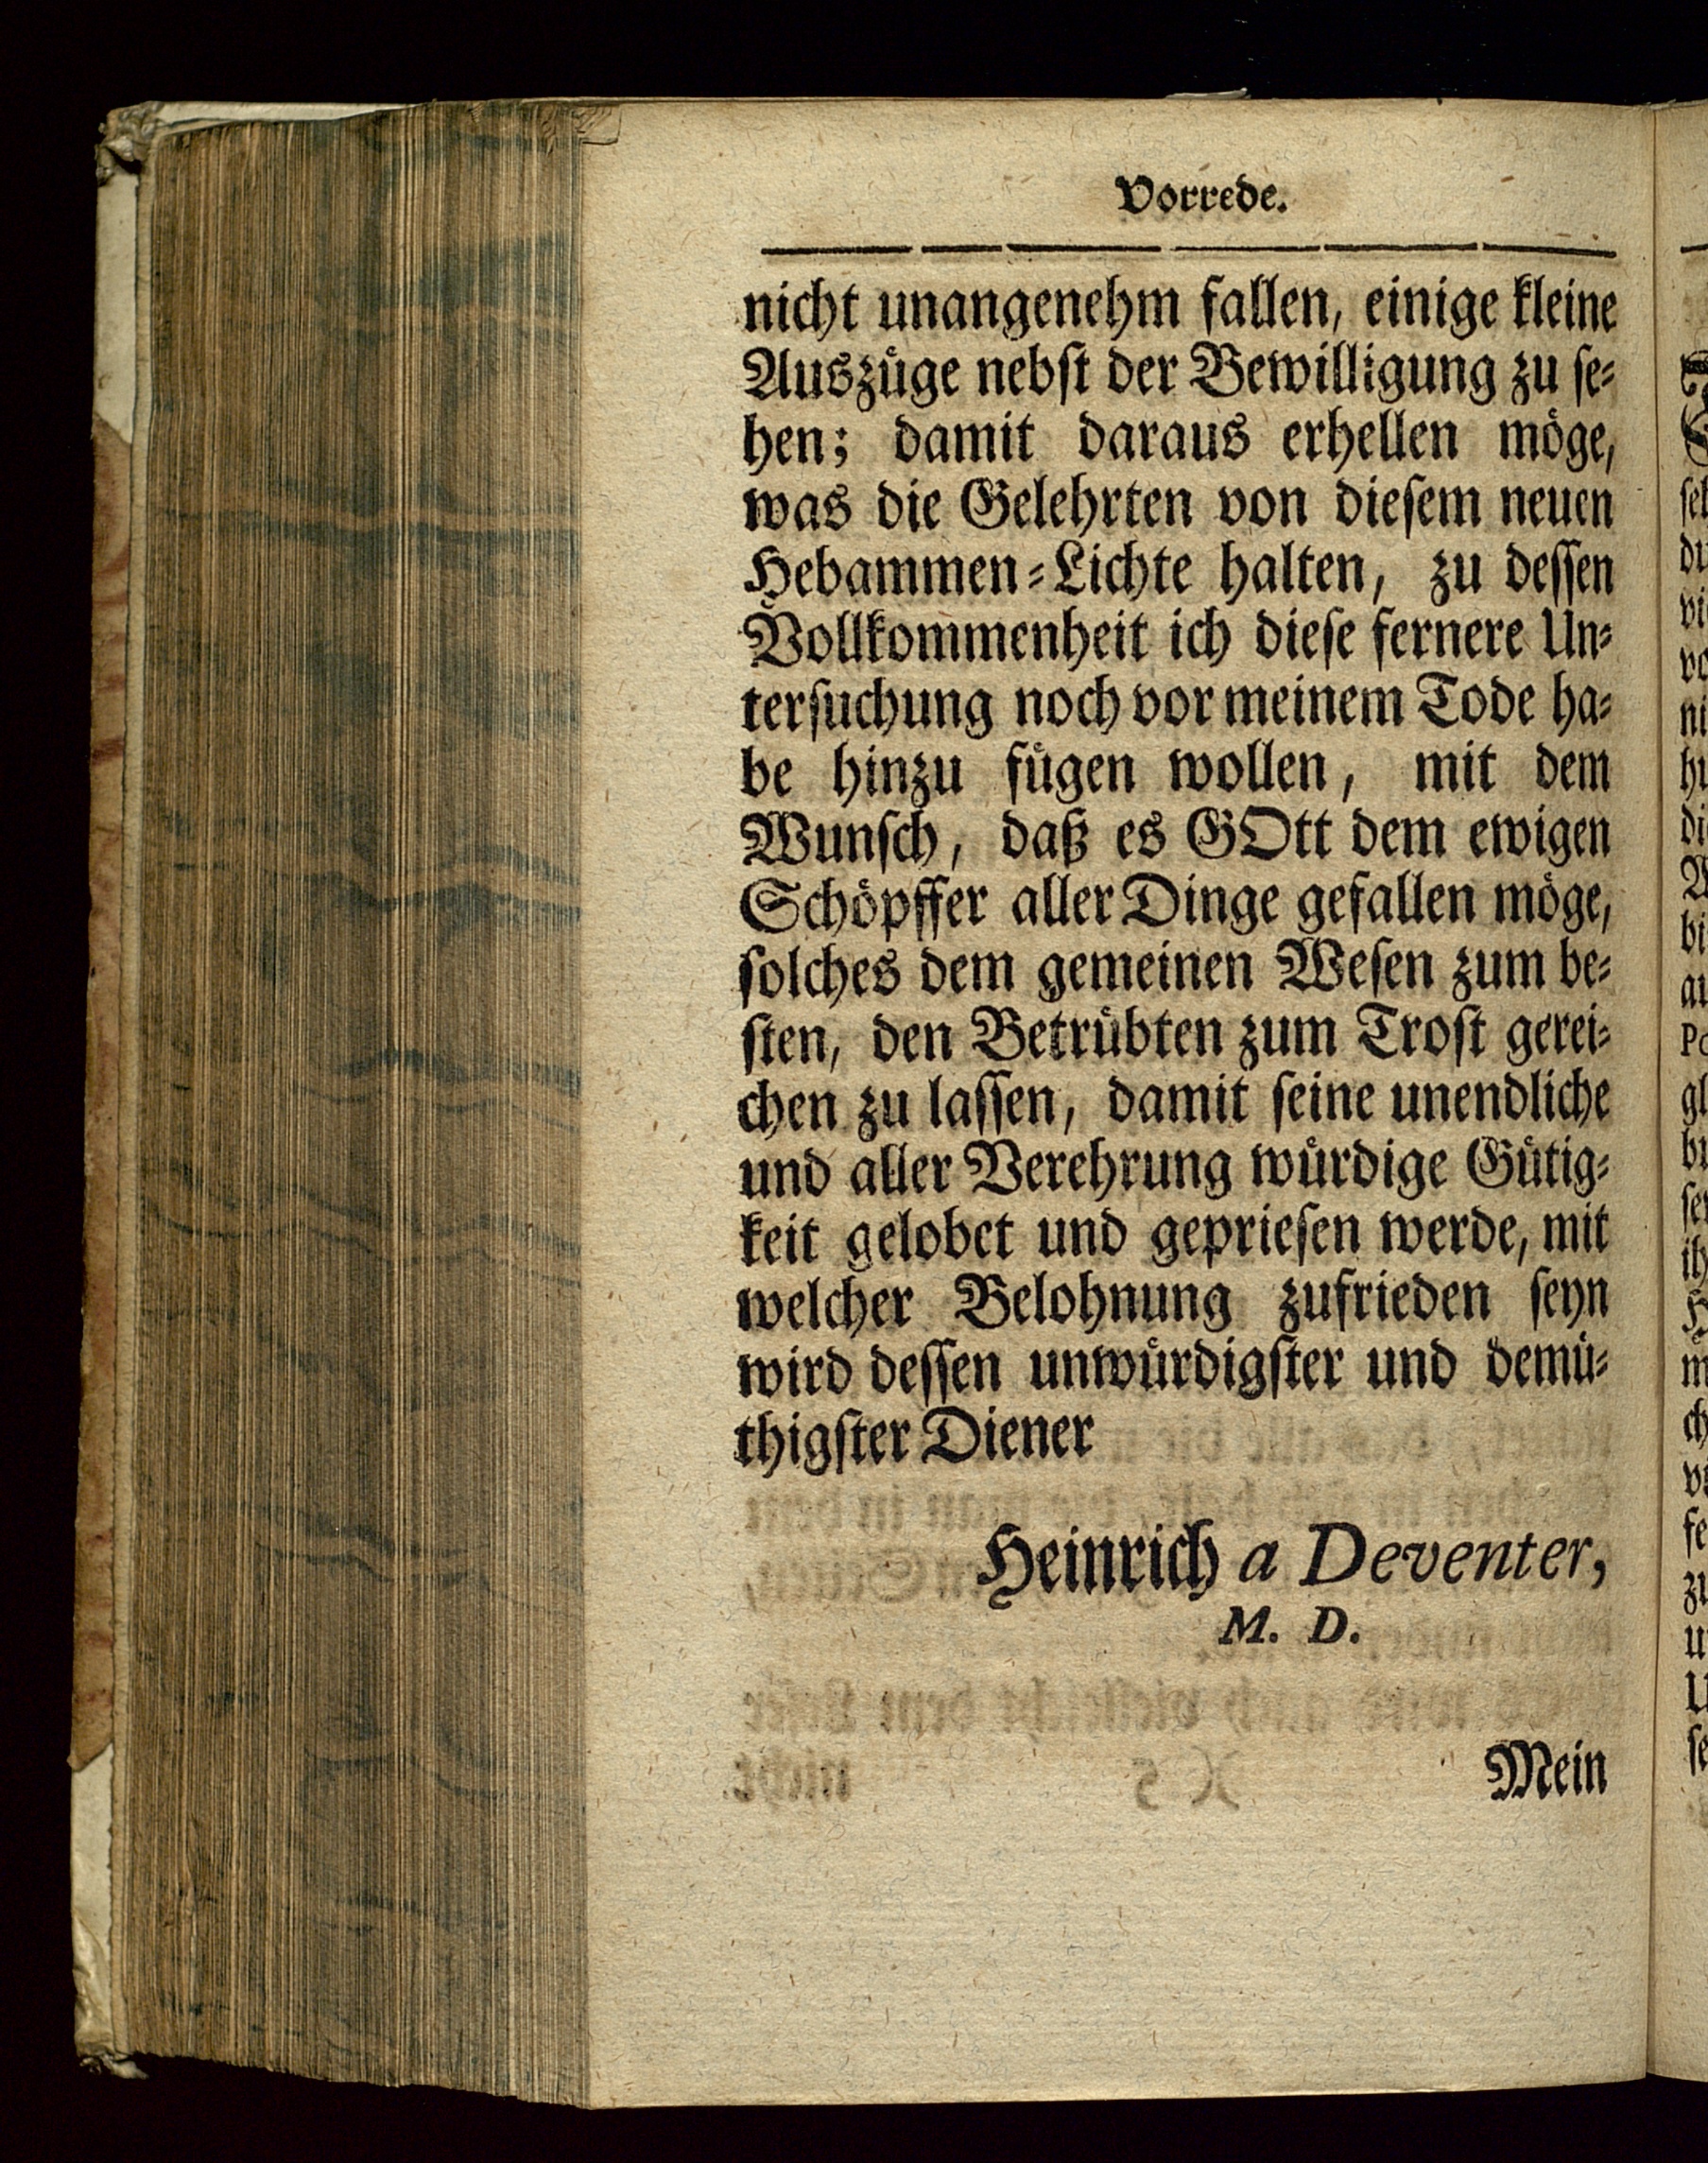 Vorrede.
nicht unangenehm fallen, einige kleine
Auszuͤge nebſt der Bewilligung zu ſe⸗
hen; damit daraus erhellen moͤge,
was die Gelehrten von dieſem neuen
Hebammen⸗Lichte halten, zu deſſen
Vollkommenheit ich dieſe fernere Un⸗
terſuchung noch vor meinem Tode ha⸗
be hinzu fuͤgen wollen, mit dem
Wunſch, daß es GOtt dem ewigen
Schoͤpffer aller Dinge gefallen moͤge,
ſolches dem gemeinen Weſen zum be⸗
ſten, den Betruͤbten zum Troſt gerei⸗
chen zu laſſen, damit ſeine unendliche
und aller Verehrung wuͤrdige Guͤtig⸗
keit gelobet und geprieſen werde, mit
welcher Belohnung zufrieden ſeyn
wird deſſen unwuͤrdigſter und demuͤ⸗
thigſter Diener
Heinrich a Deventer,
M. D.
Mein